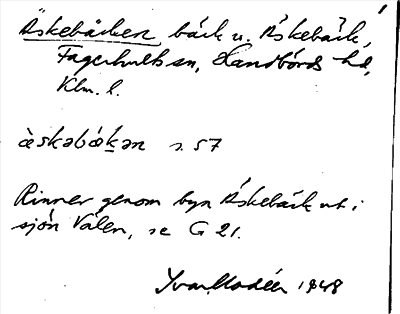 Äskebäcken bäck v. Äskebäck,
Fagerhults sn, Handbörds hd,
Klm. l.
àskəbákən s. 57
Rinner genom byn Äskebäck ut i
sjön Välen, se G 21.
Ivar Modéer 1948